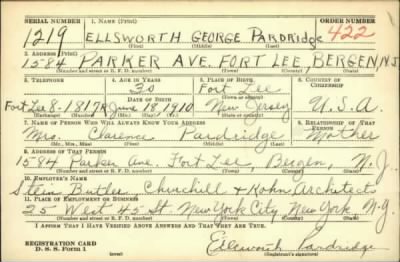 SERIAL NUMBER 1. NAME (Print) ORDER NUMBER
1219 ELLSWORTH GEORGE PARDRIDGE 422
(First) (Middle) (Last)
2. ADDRESS (Print)
1584 PARKER AVE. FORT LEE, BERGEN N.J.
(Number and street or R. F. D. number) (Town) (County) (State)
3. TELEPHONE 4. AGE IN YEARS 5. PLACE OF BIRTH 6. COUNTRY OF CITIZENSHIP
30 Fort Lee
Fort Lee 8-1817R DATE OF BIRTH (Town or county)
June 18, 1910 New Jersey U.S.A.
(Exchange) (Number) (Mo.) (Day) (Yr.) (State or country)
7. NAME OF PERSON WHO WILL ALWAYS KNOW YOUR ADDRESS 8. RELATIONSHIP OF THAT PERSON
Mrs. Clarence Pardridge Mother
(Mr., Mrs., Miss) (First) (Middle) (Last)
9. ADDRESS OF THAT PERSON
1584 Parker Ave. Fort Lee, Bergen, N. J.
(Number and street or R. F. D. number) (Town) (County) (State)
10. EMPLOYER'S NAME
Stein Butler, Churchill & Kohn Architects
11. PLACE OF EMPLOYMENT OR BUSINESS
25 West 45 St. New York City New York N.Y.
(Number and street or R. F. D. number) (Town) (County) (State)
I AFFIRM THAT I HAVE VERIFIED ABOVE ANSWERS AND THAT THEY ARE TRUE.
REGISTRATION CARD
D. S. S. Form 1
Ellsworth Pardridge
(Registrant's signature)